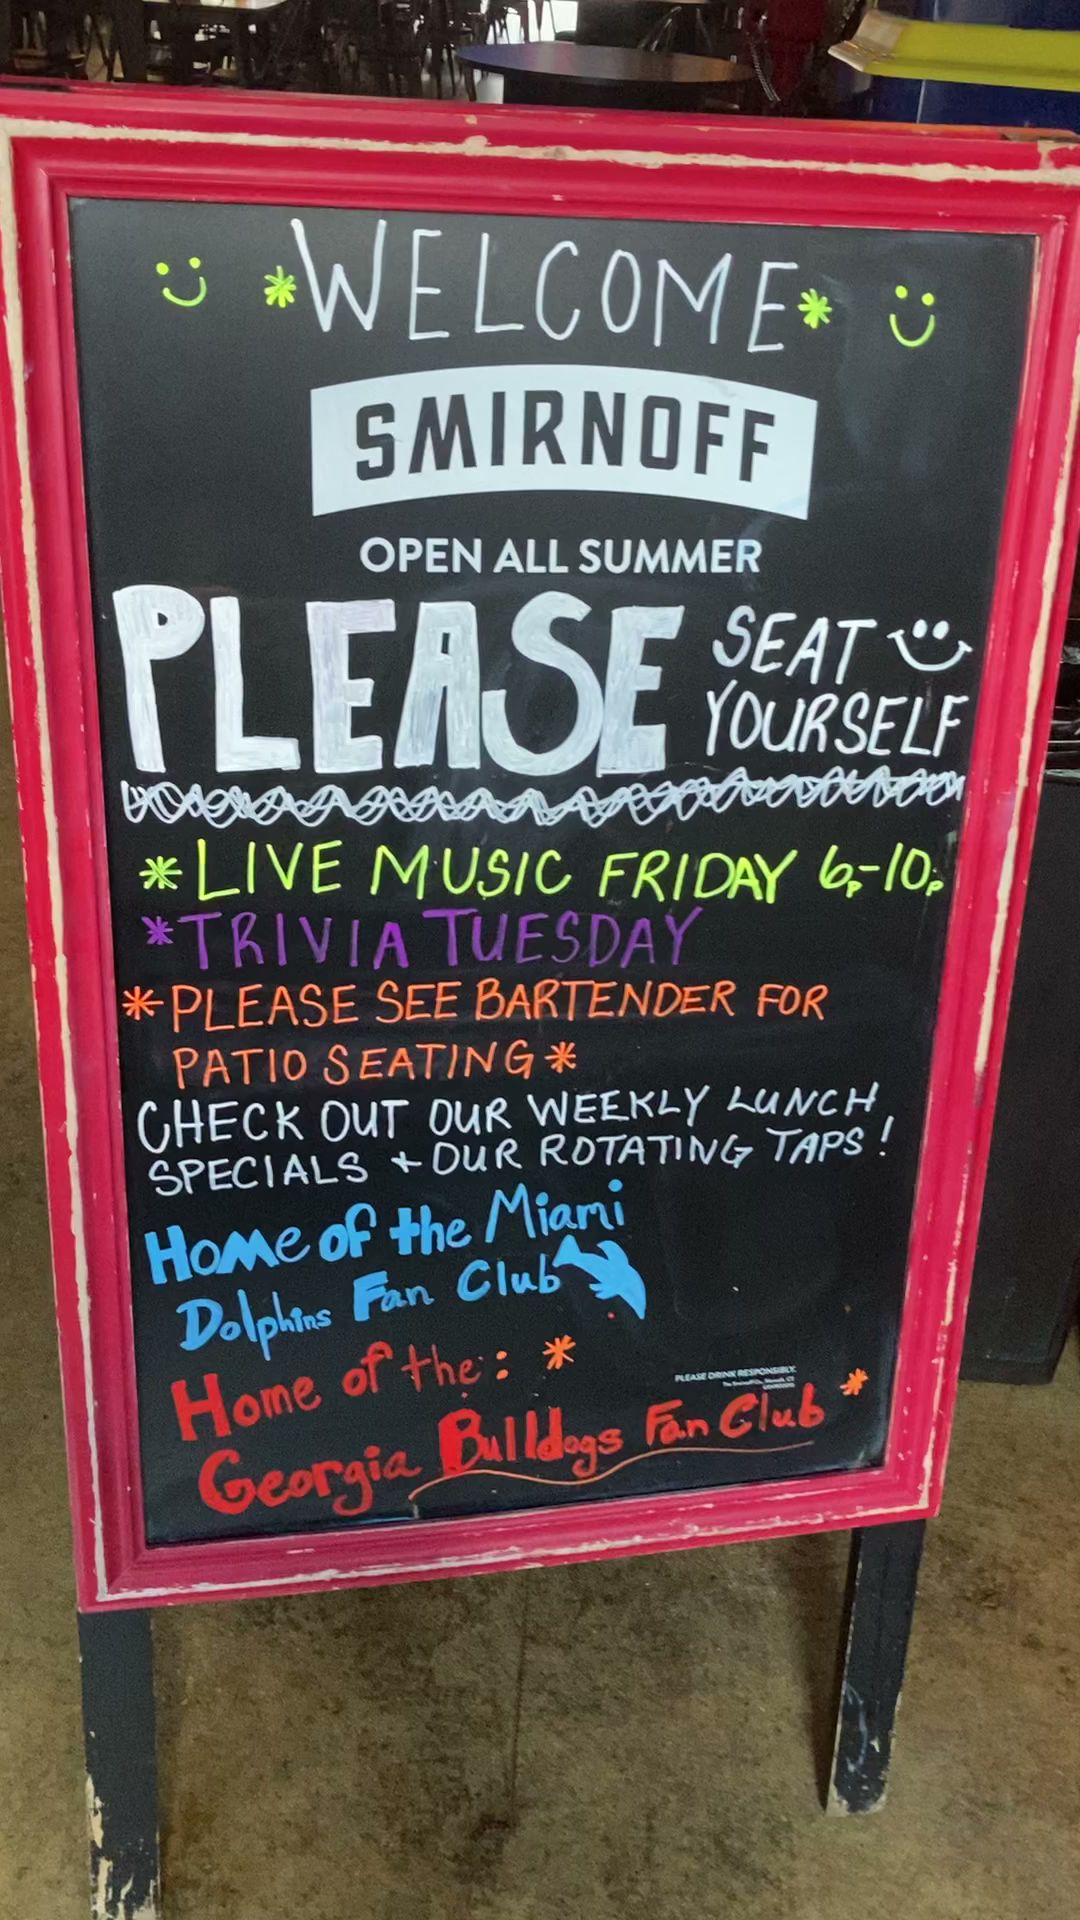 *WELCOME*
SMIRNOFF
OPEN ALL SUMMER
PLEASE SEAT
YOURSELF
*LIVE MUSIC FRIDAY 6p-10p
*TRIVIA TUESDAY
*PLEASE SEE BARTENDER FOR
PATIO SEATING*
CHECK OUT OUR WEEKLY LUNCH
SPECIALS + OUR ROTATING TAPS!
Home of the Miami
Dolphins Fan Club
Home of the: *
PLEASE DRINK RESPONSIBLY.
Georgia Bulldogs Fan Club *